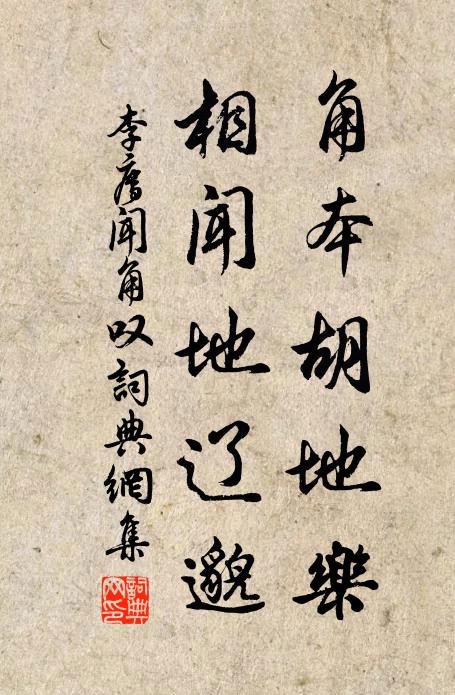 角本胡地樂
相聞地辽邈
李廌聞角叹詞典網集
詞典網印